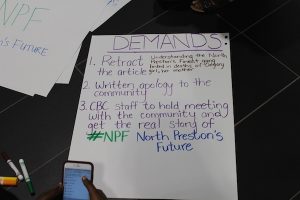 NPF
n's Future
DEMANDS:
1. Retract the article
Understanding the North Preston's Finest gang
tinted in deaths of
girl, her mother
2. Written apology to the
community
3. CBC staff to hold meeting
with the community and
get the real story of
#NPF North Preston's
Future